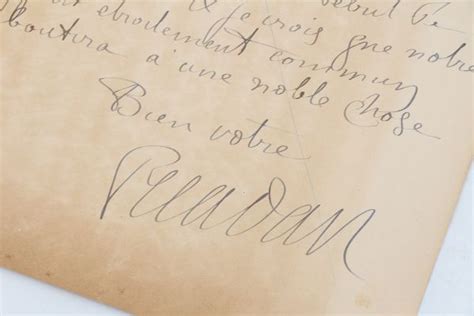 début de
je crois que notre
étroitement commun
boutira à une noble chose
Bien votre
Peladan